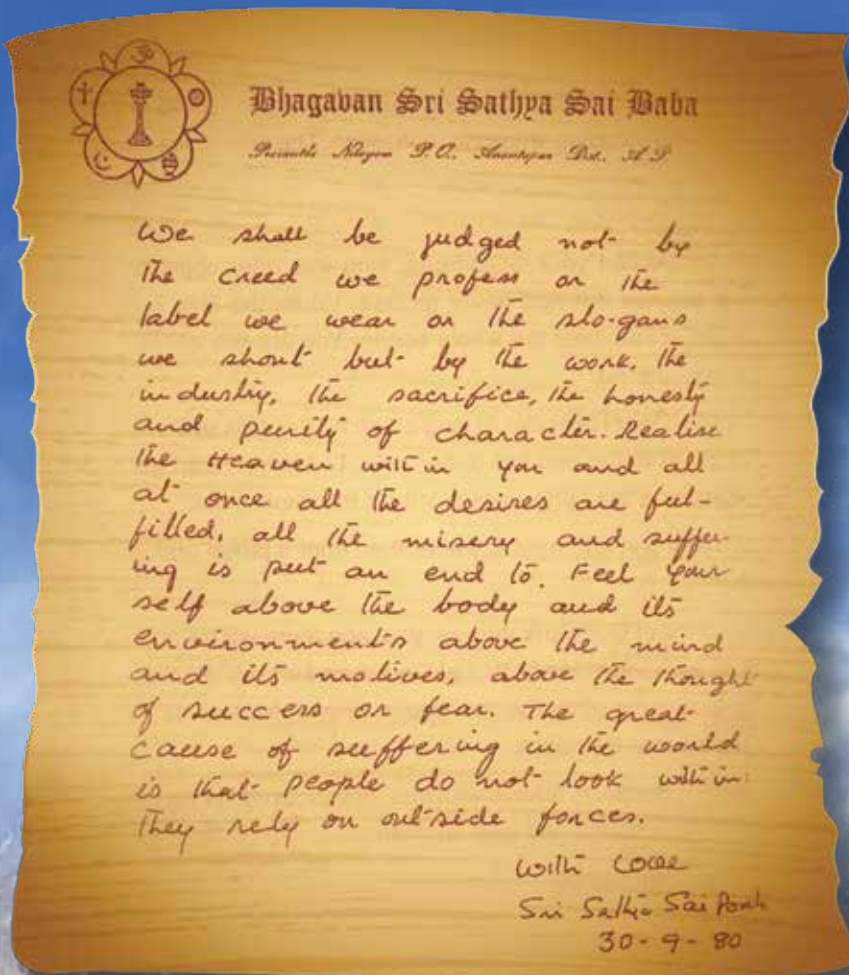 Bhagavan Sri Sathya Sai Baba
Prasanthi Nilayam P.O., Anantapur Dist., A.P.
We shall be judged not by
the creed we profess or the
label we wear or the slo-gans
we shout but by the work, the
industry, the sacrifice, the honesty
and purity of character. Realise
the Heaven within you and all
at once all the desires are ful-
filled, all the misery and suffer-
ing is put an end to. Feel your
self above the body and its
environments above the mind
and its motives, above the thought
of success or fear. The great
cause of suffering in the world
is that people do not look within
They rely on outside forces.
With Love
Sri Sathya Sai
30-9-80